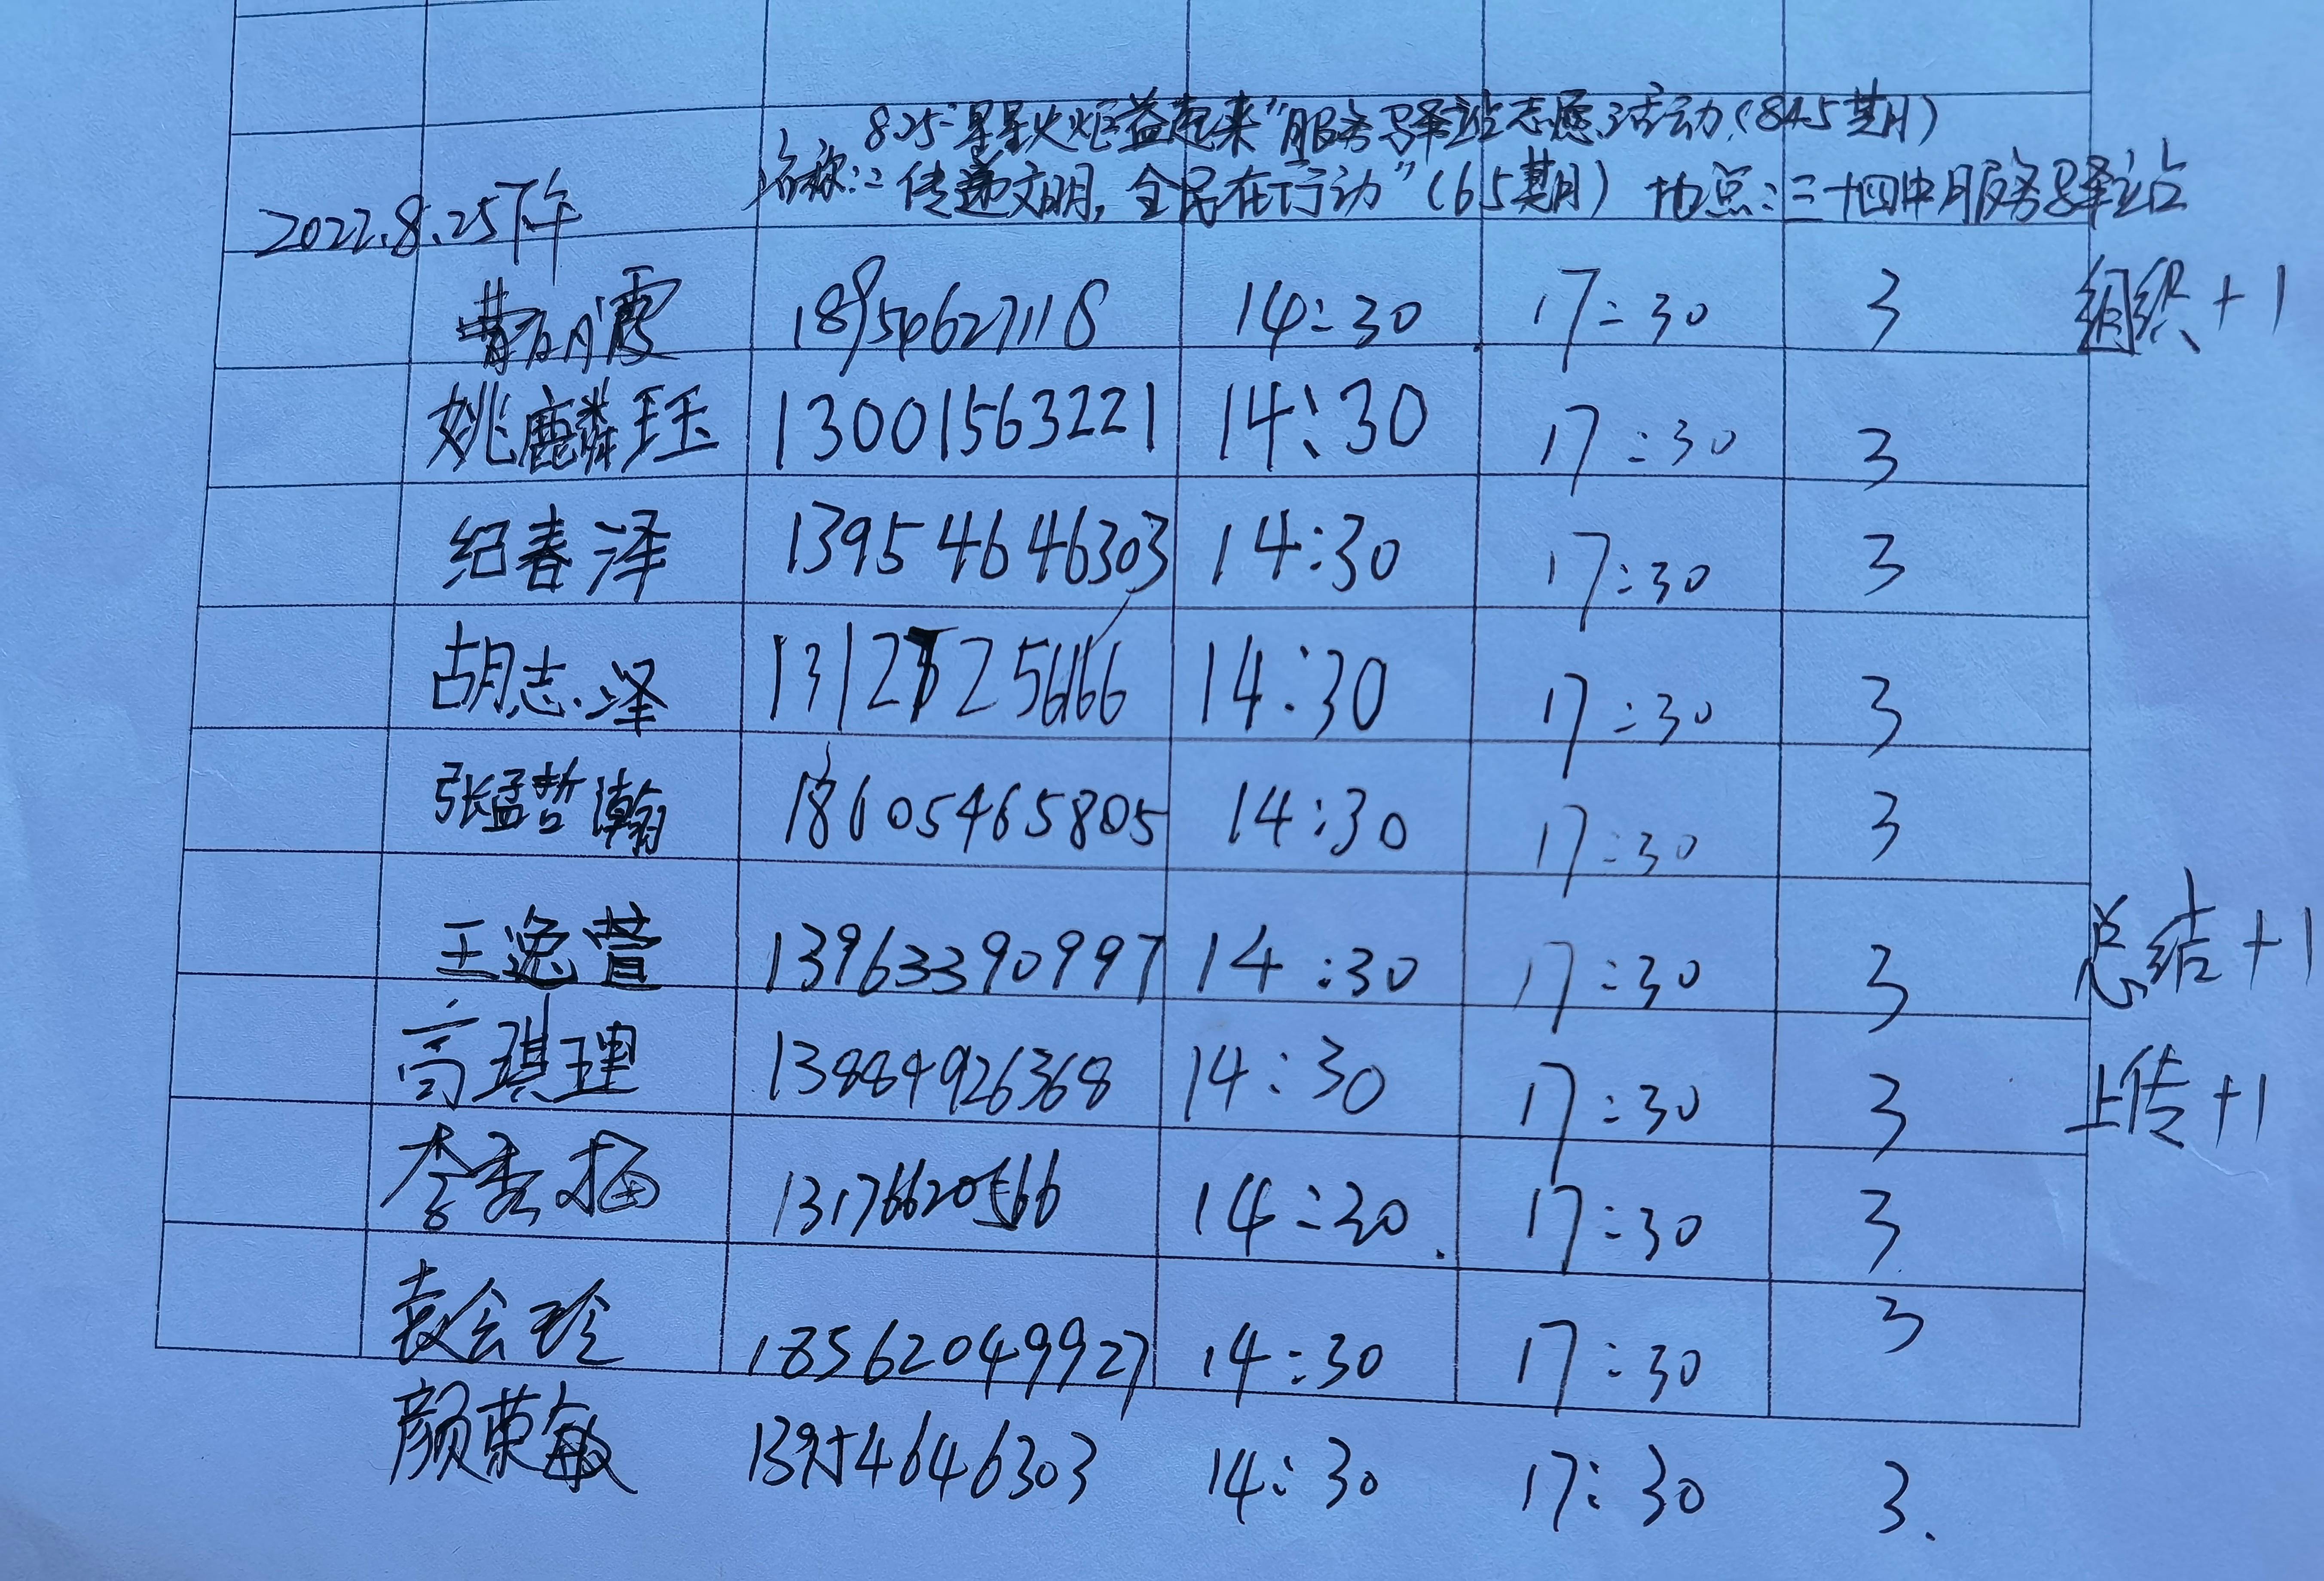 825"星星火炬益起来"服务驿站志愿活动(845期)
名称:"传递文明,全民在行动"(65期) 地点:三十四中服务驿站
2022.8.25下午
曹有霞 18954627118 14:30 17:30 3 组织+1
姚麟珏 13001563221 14:30 17:30 3
纪春泽 13954646303 14:30 17:30 3
胡志泽 14:30 17:30 3
张孟哲瀚 18605465805 14:30 17:30 3
王逸萱 13963390997 14:30 17:30 3 总结+1
高琪理 13884926368 14:30 17:30 3 上传+1
李秀梅 13176620566 14:30 17:30 3
袁会玲 18562049927 14:30 17:30 3
颜荣敏 13954646303 14:30 17:30 3.